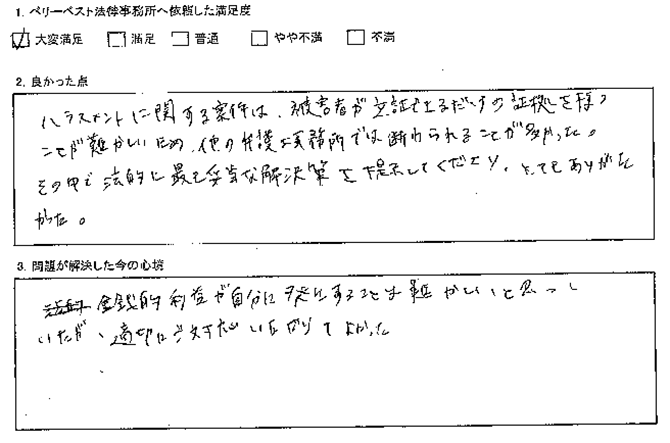 1. ベリーベスト法律事務所へ依頼した満足度
大変満足 満足 普通 やや不満 不満
2. 良かった点
ハラスメントに関する案件は、被害者が立証できるだけの証拠を持つ
ことが難かしいため、他の弁護士事務所では断わられることが多かった。
その中で法的に最も妥当な解決策を提示してくださり、とてもありがた
かった。
3. 問題が解決した今の心境
金銭的利益が自分に発生することは難かしいと思って
いたが、適切に対応いただけてよかった